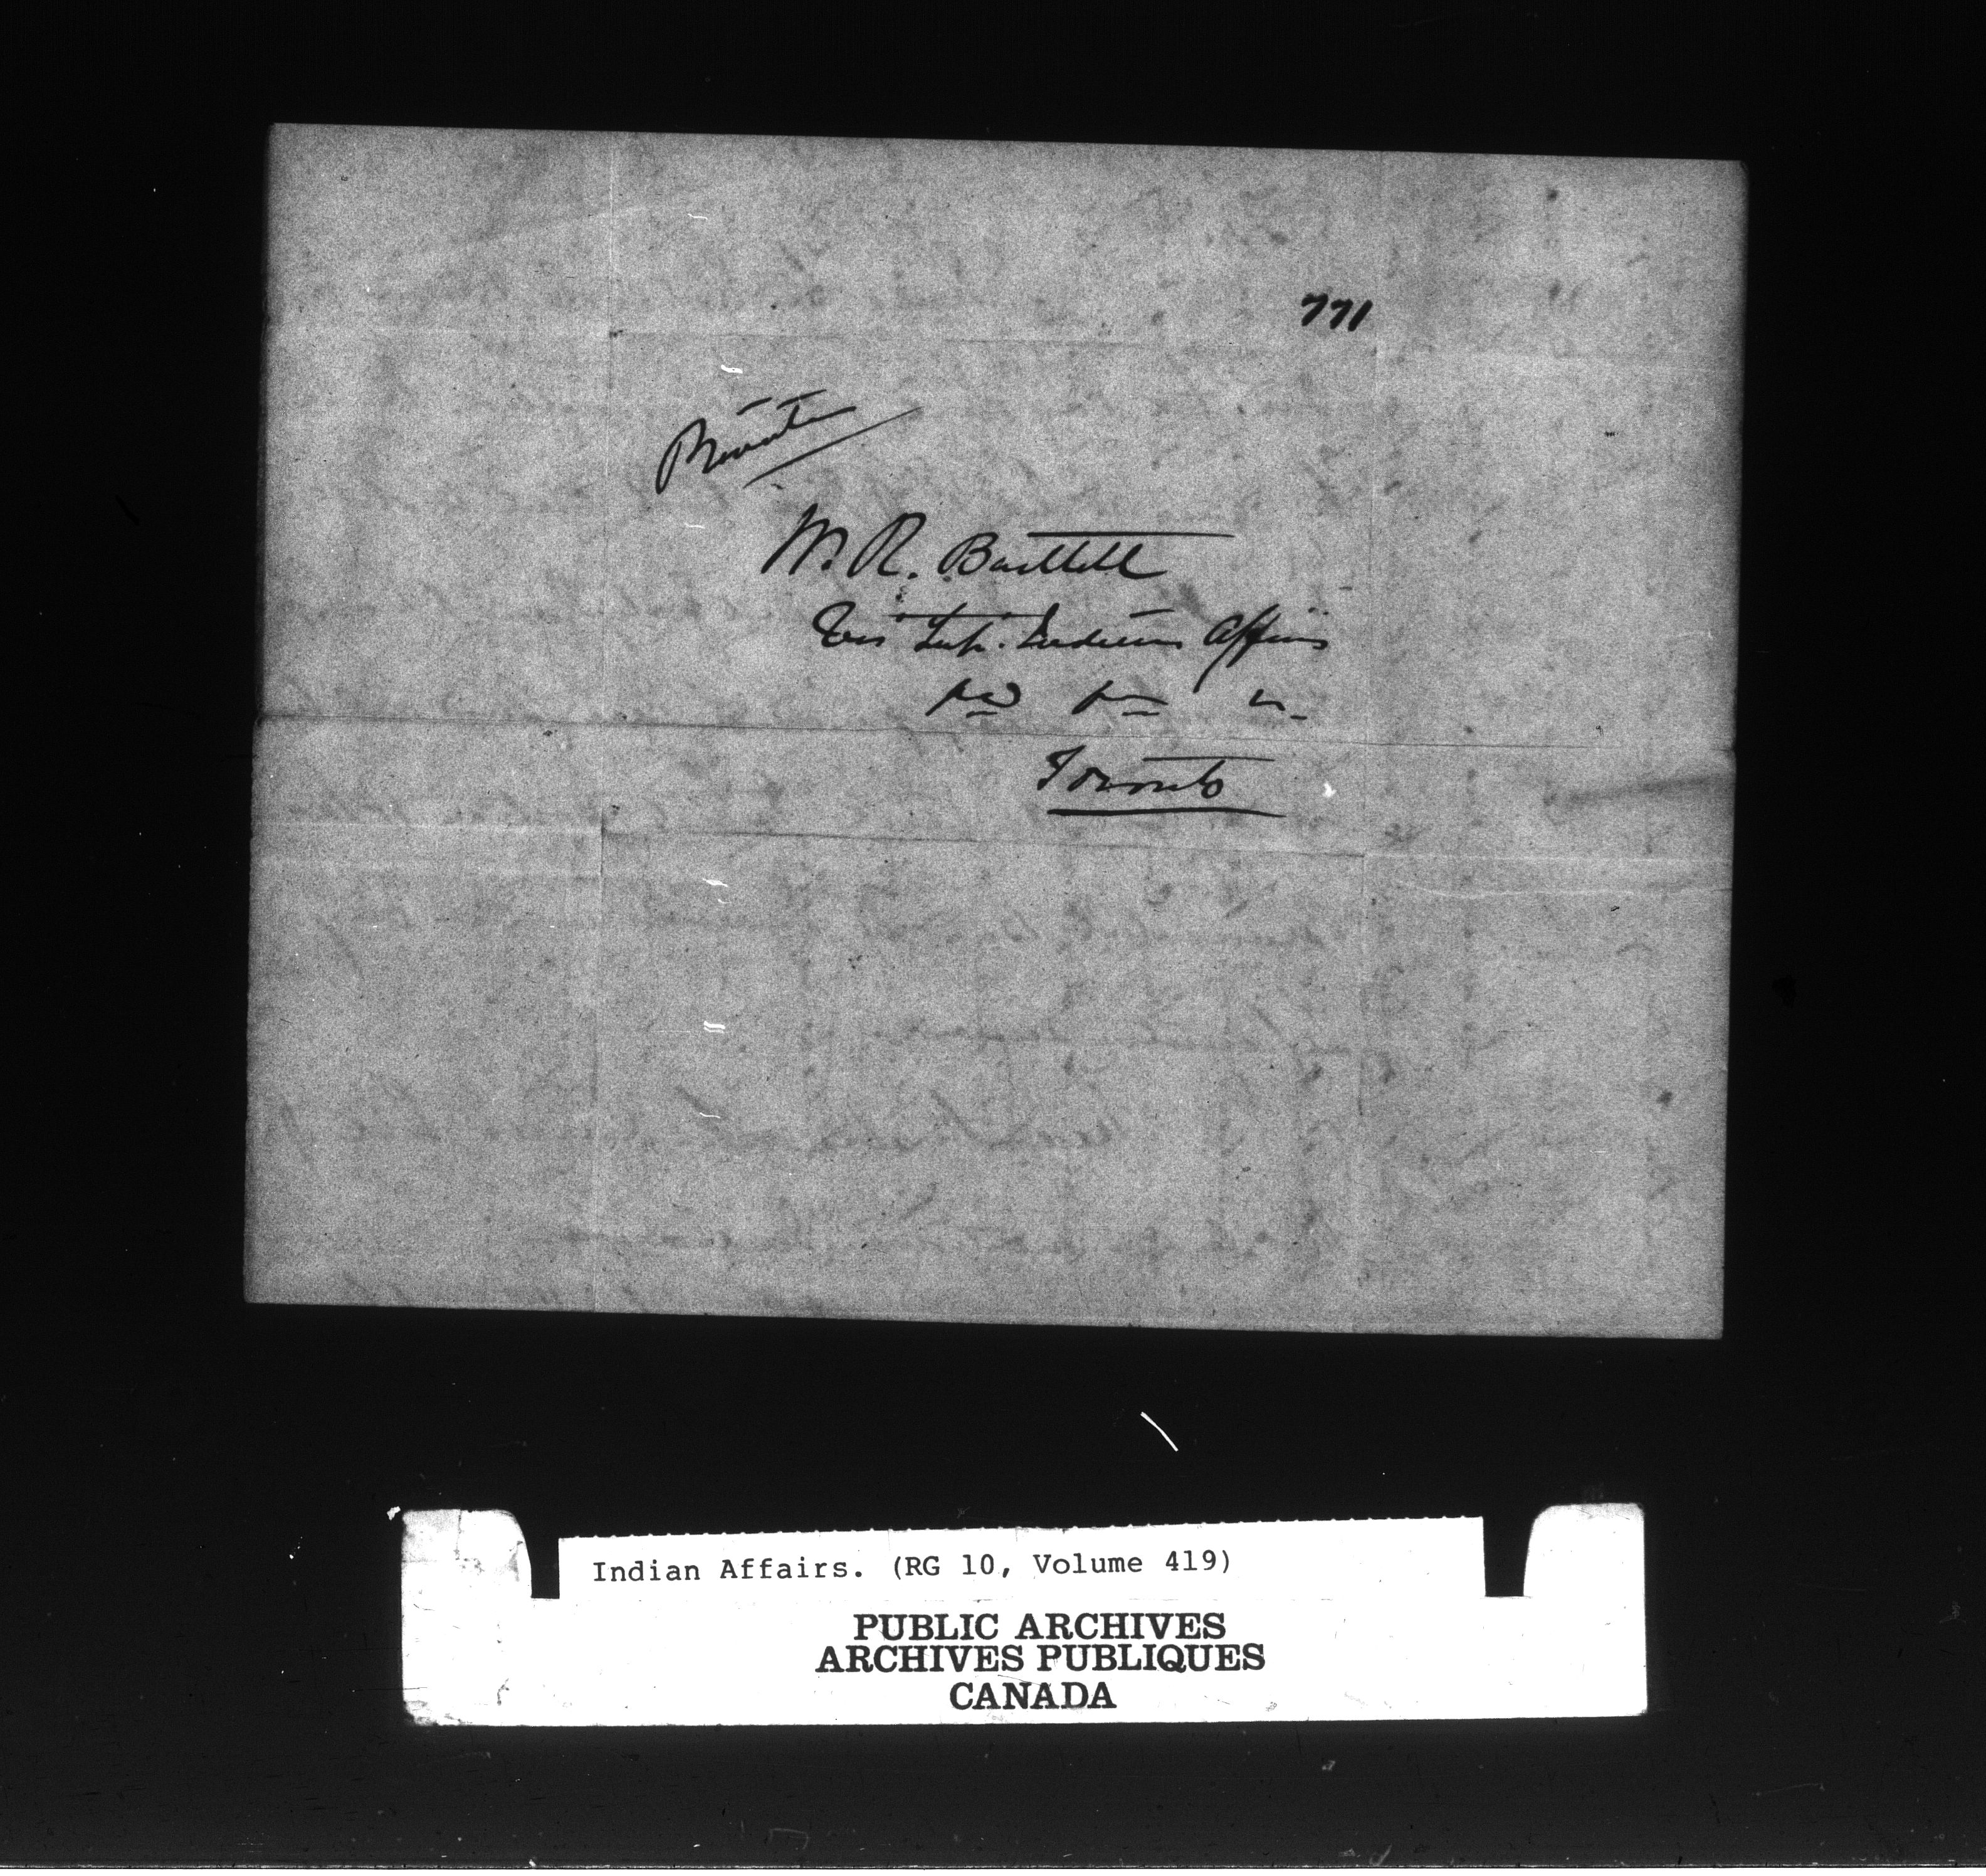 771
Private
W. R. Bartlett
Vis Sup. Indian Affairs
Toronto
Indian Affairs. (RG 10, Volume 419)
PUBLIC ARCHIVES
ARCHIVES PUBLIQUES
CANADA